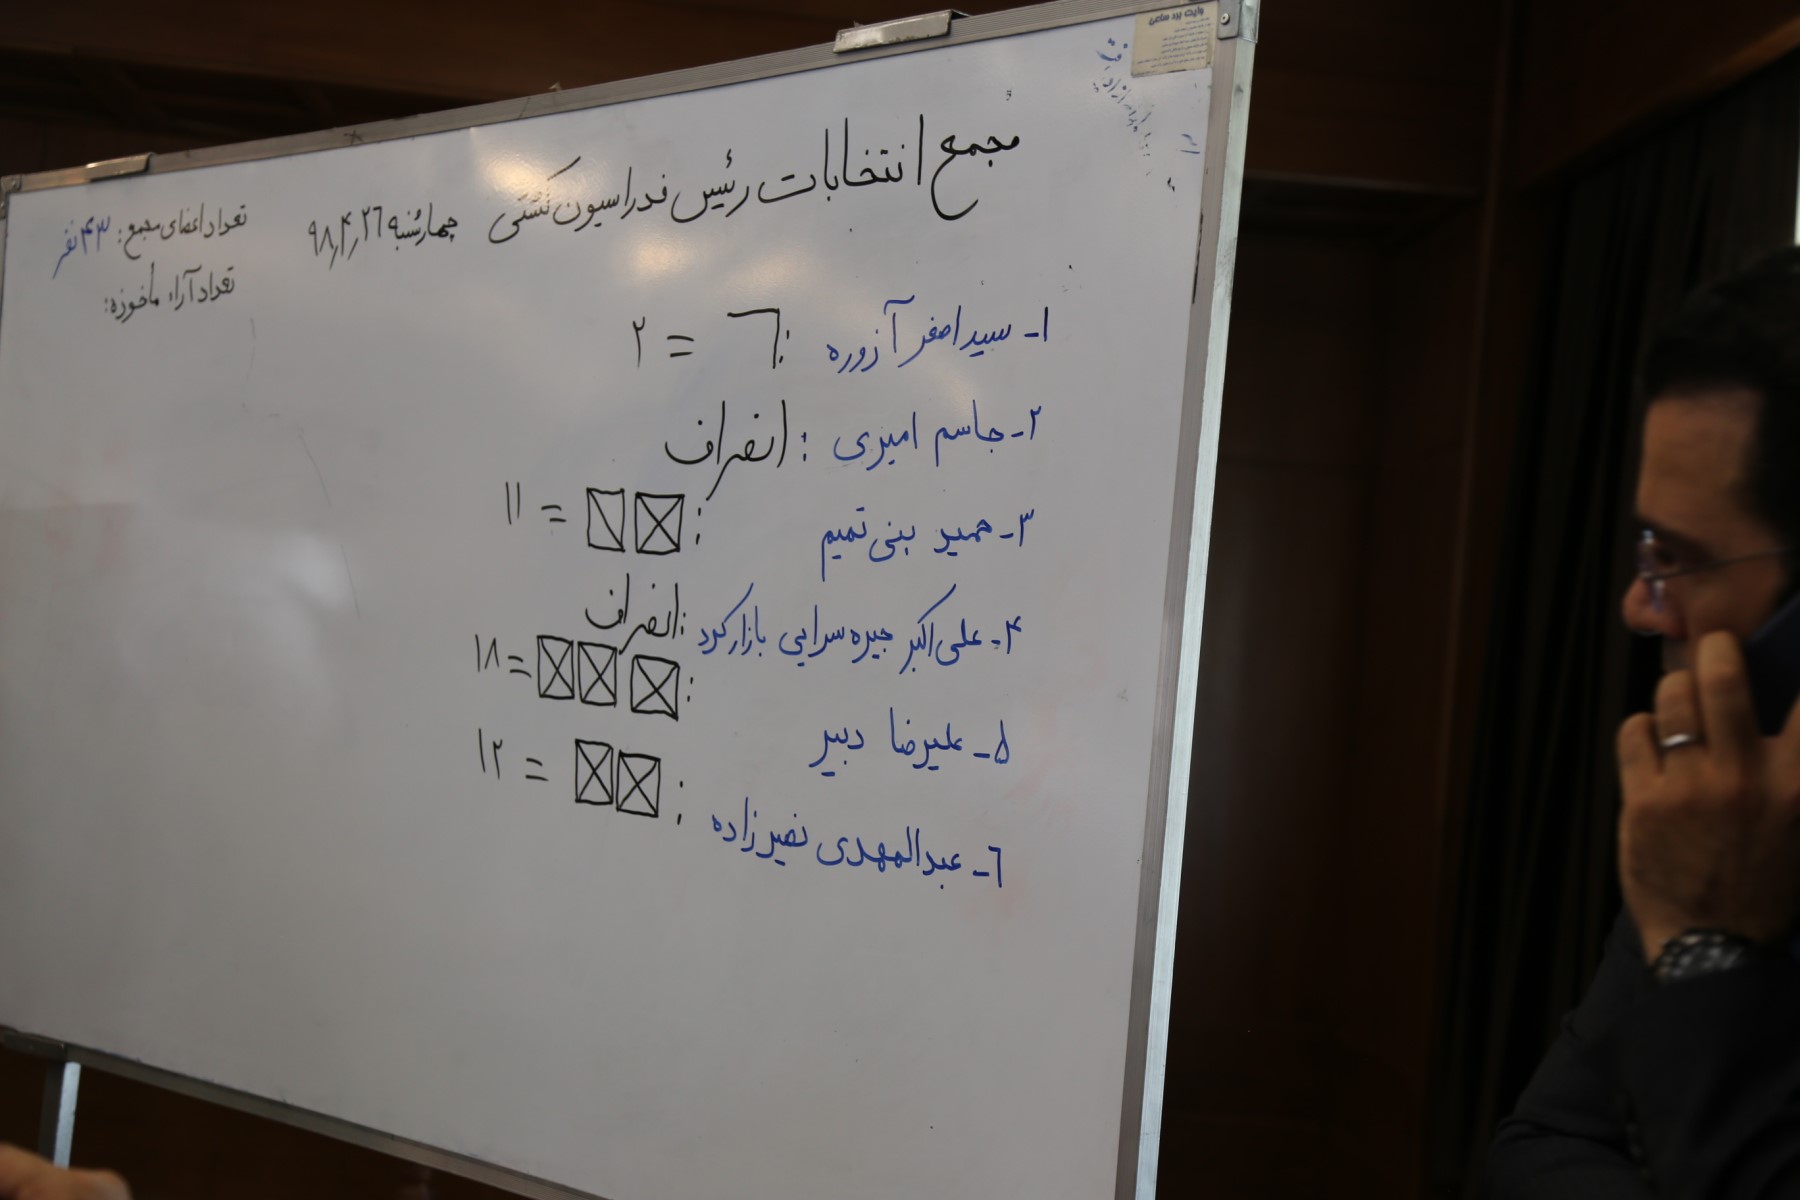 وایت برد ساعی
مجمع انتخابات رئیس فدراسیون کشتی چهارشنبه ۹۸٫۴٫۲۶
تعداد اعضای مجمع: ۴۳ نفر
تعداد آراء مأخوزه:
۱- سید اصغر آزوره : = ۲
۲- جاسم امیری : انصراف
۳- حمید بنی تمیم : = ۱۱
۴- علی اکبر جیره سرایی بازارکرد : انصراف
۵- علیرضا دبیر : = ۱۸
۶- عبدالمهدی نصیرزاده : = ۱۲